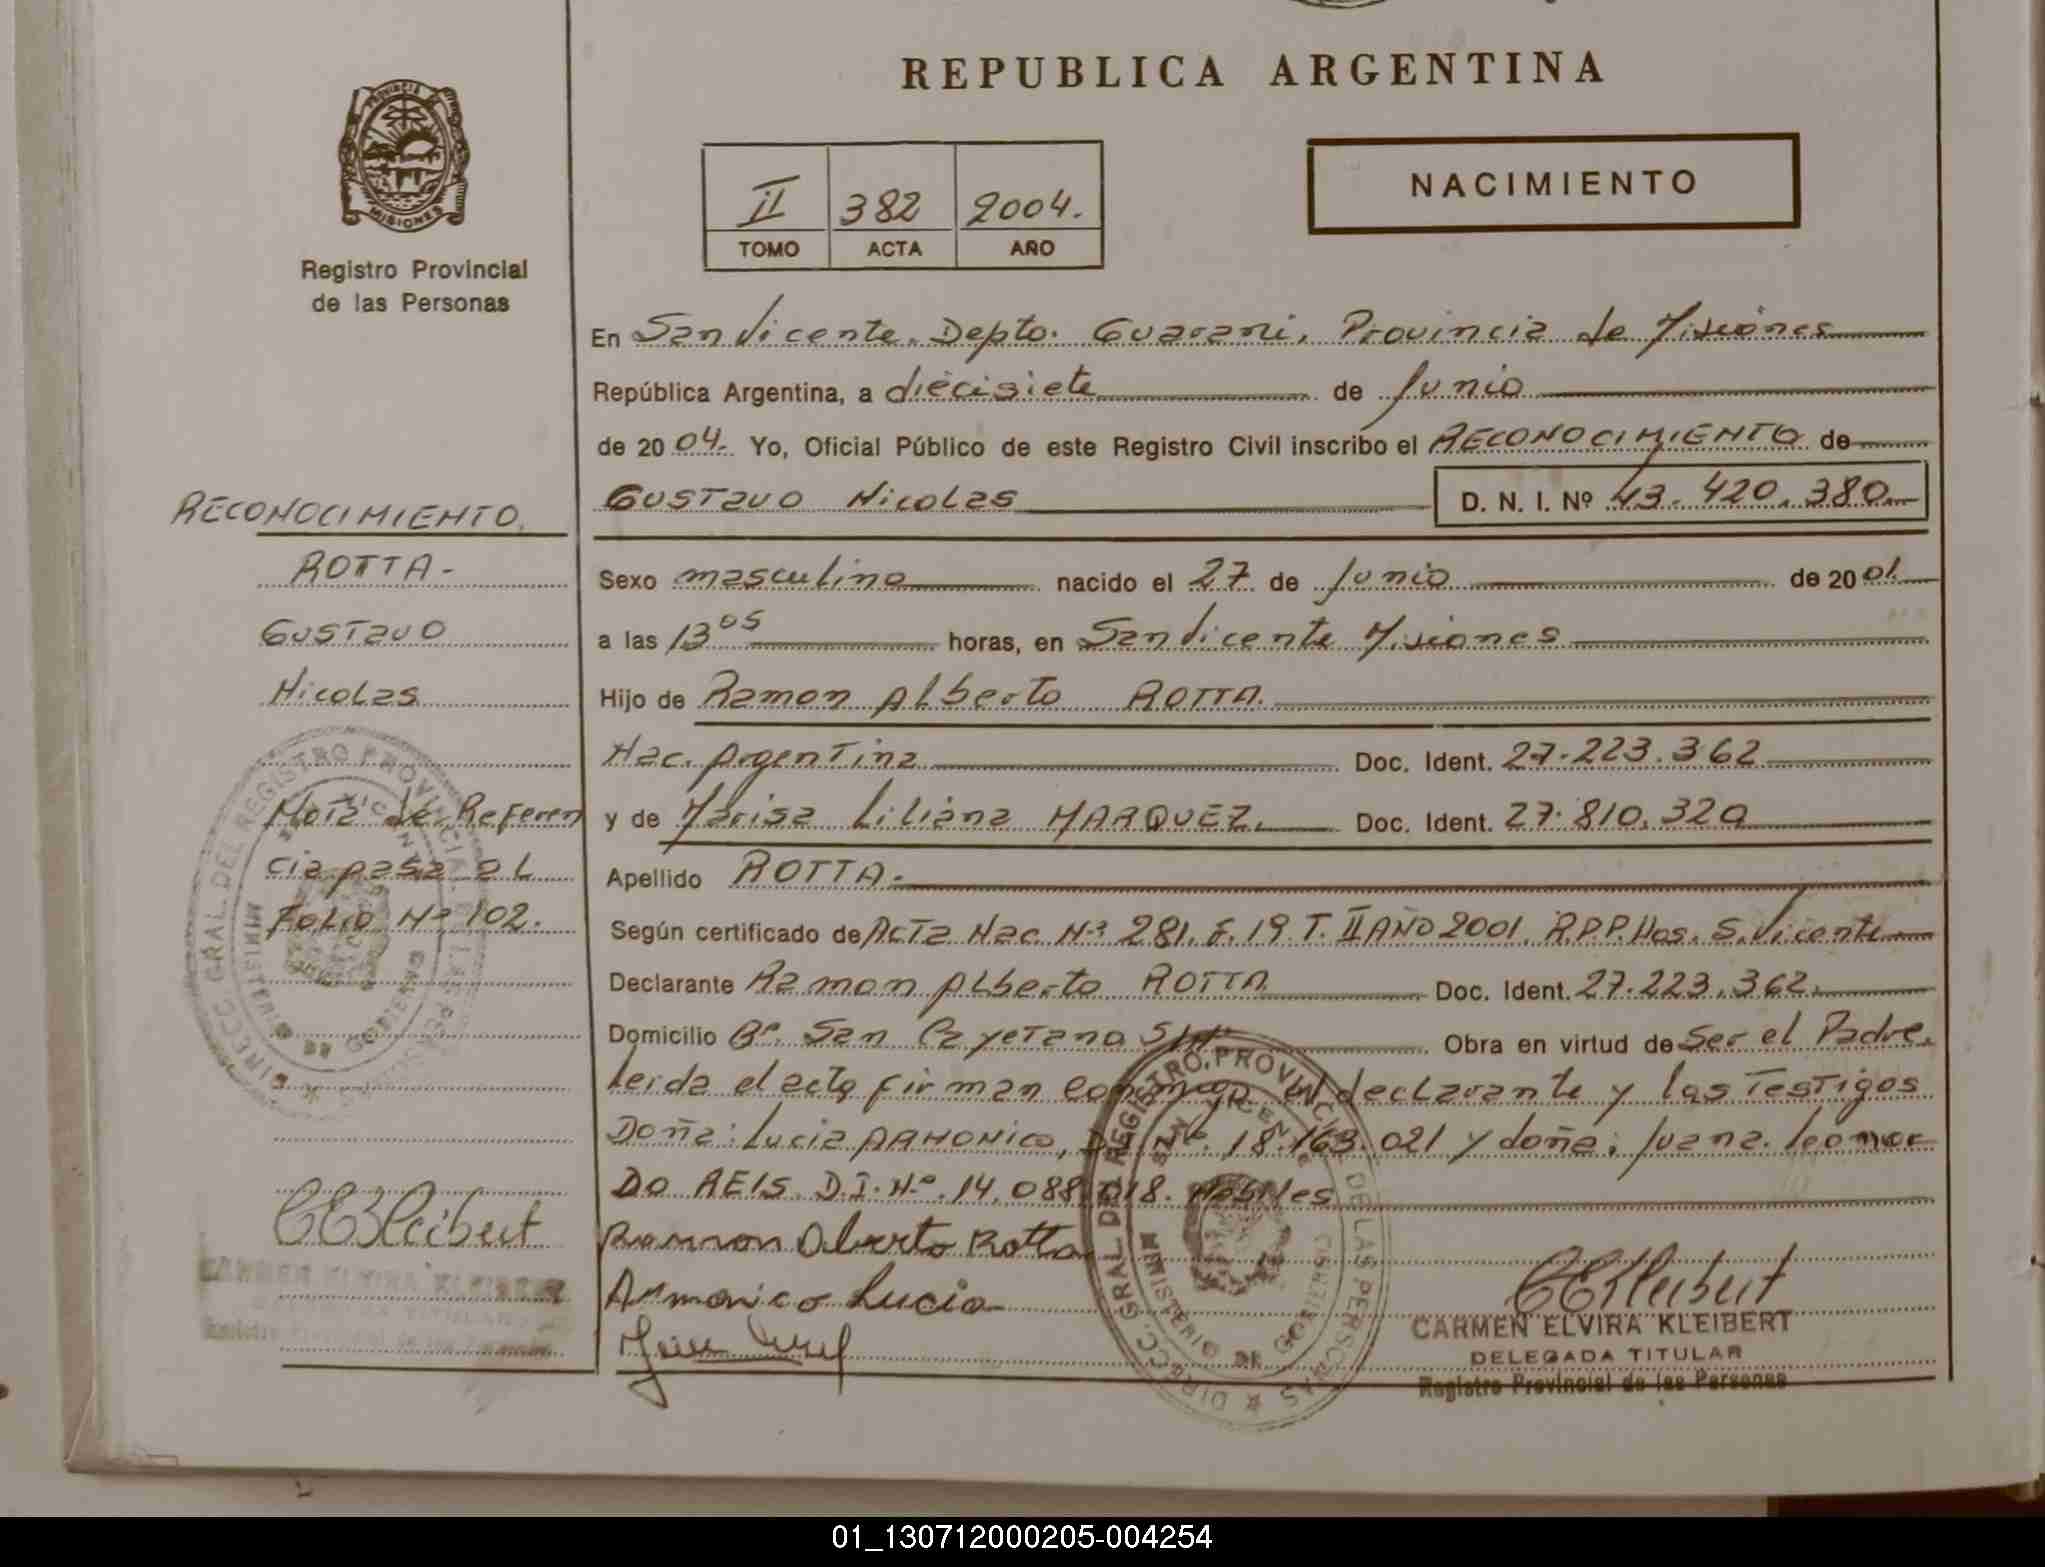 REPUBLICA ARGENTINA
PROVINCIA DE
MISIONES
Registro Provincial
de las Personas
II 382 2004.
TOMO ACTA AÑO
NACIMIENTO
En San Vicente. Depto. Guarani, Provincia de Misiones
República Argentina, a diecisiete de Junio
de 2004. Yo, Oficial Público de este Registro Civil inscribo el RECONOCIMIENTO de
GUSTavo Nicolas D. N. I. Nº 43. 420. 380.
Sexo masculino nacido el 27 de Junio de 2001.
a las 13 05 horas, en San Vicente Misiones
Hijo de Ramon Alberto ROTTA.
Nac. Argentina Doc. Ident. 27.223.362
y de Marisa Liliana MARQUEZ. Doc. Ident. 27.810.320
Apellido ROTTA.
Según certificado de Acta Nac. Nº 281. F. 19. T. II AÑO 2001. R.P.P. Hos. S. Vicente
Declarante Ramon Alberto ROTTA Doc. Ident. 27.223.362.
Domicilio Bº. San Cayetano S/Nº Obra en virtud de Ser el Padre.
leida el acta, firman conmigo el declarante y las Testigos
Doña: Lucia ARMONICO, Nº. 18.163.021 y doña: Juana
DO REIS. D.I. Nº. 14.088.018. Habiles
Ramon Alberto Rotta
Armonico Lucia
CEKleibert
CARMEN ELVIRA KLEIBERT
DELEGADA TITULAR
Registro Provincial de las Personas
RECONOCIMIENTO.
ROTTA-
GUSTavo
Nicolas
Nota de Referen
cia pasa al
Folio Nº 102.
CEKleibert
DIRECC. GRAL. DEL REGISTRO PROVINCIAL DE LAS PERSONAS
SAN VICENTE
MINISTERIO DE GOBIERNO
DIRECC. GRAL. DEL REGISTRO PROVINCIAL DE LAS PERSONAS
MINISTERIO DE GOBIERNO
01_130712000205-004254